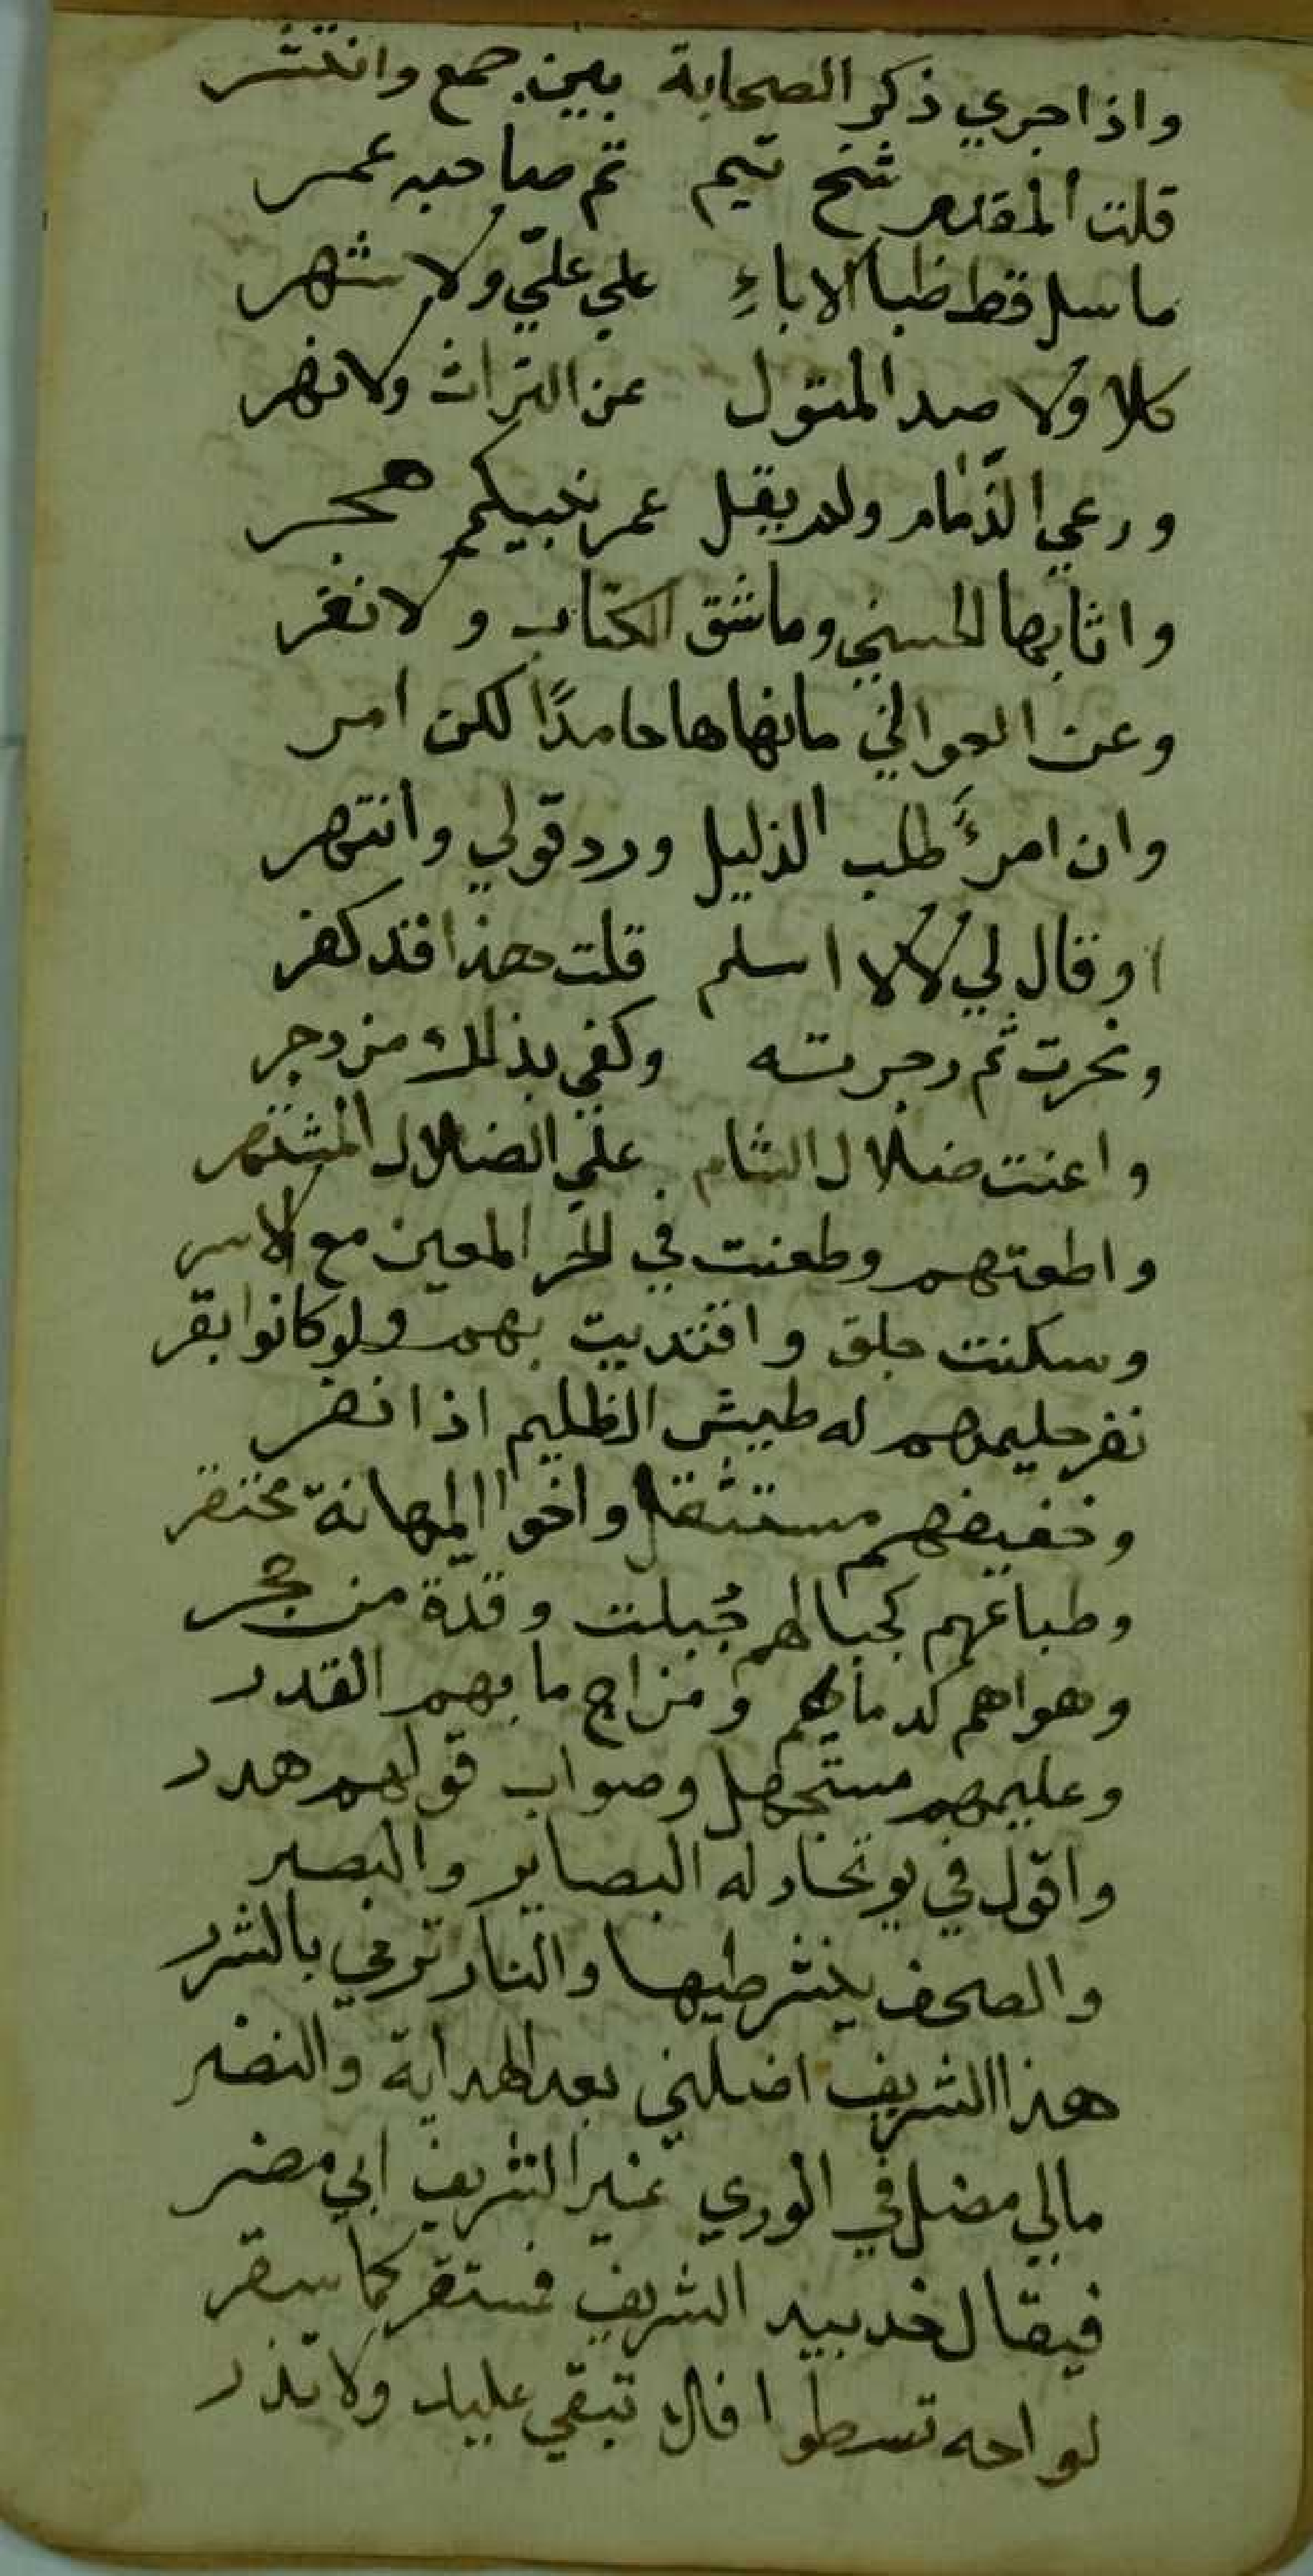 واذا جري ذكر الصحابة بين جمع وانتشر
قلت المقدم شخ تيم ثم صاحبه عمر
ما سل قط ظبا الاباءِ علي عليّ ولا شهر
كلا ولا صد البتول عن التراث ولا نهر
ورعي الذّمام ولم يقل عمر نبيكم هجر
واثابها الحسني وما شق الكتاب ولا نفر
وعن العوالي ما نهاها حامدًا لكن امر
وان امرءً طلب الدليل ورد قولي وانتهر
او قال لي لا لا اسلم قلت هذا قد كفر
ونخرت ثم زجرته وكفي بذلك مزدجر
واعنت ضلال الشام علي الضلال المشتهر
واطعتهم وطعنت في الخبر المعين مع الاسر
وسكنت جلق واقتديت بهم ولو كانوا بقر
نفر حليمهم له طيش الظليم اذا نفر
وخفيفهم مستثقل واخو المهانة محتقر
وطباعهم كجبالهم جُبلت وقدّة من حجر
وهواهم كدمائهم ومزاج مابهم القدر
وعليمهم مستجهل وصواب قولهم هدر
واقول في يو تحار له البصاير والبصر
والصحف ينشر طيها والنار ترمي بالشرر
هذا الشريف اضلني بعد الهداية والنضر
مالي مضل في الوري غير الشريف ابي مضر
فيقال خد بيد الشريف فمستقر كما سقر
لواحه تسطوا فال تبقي عليه ولا تذر